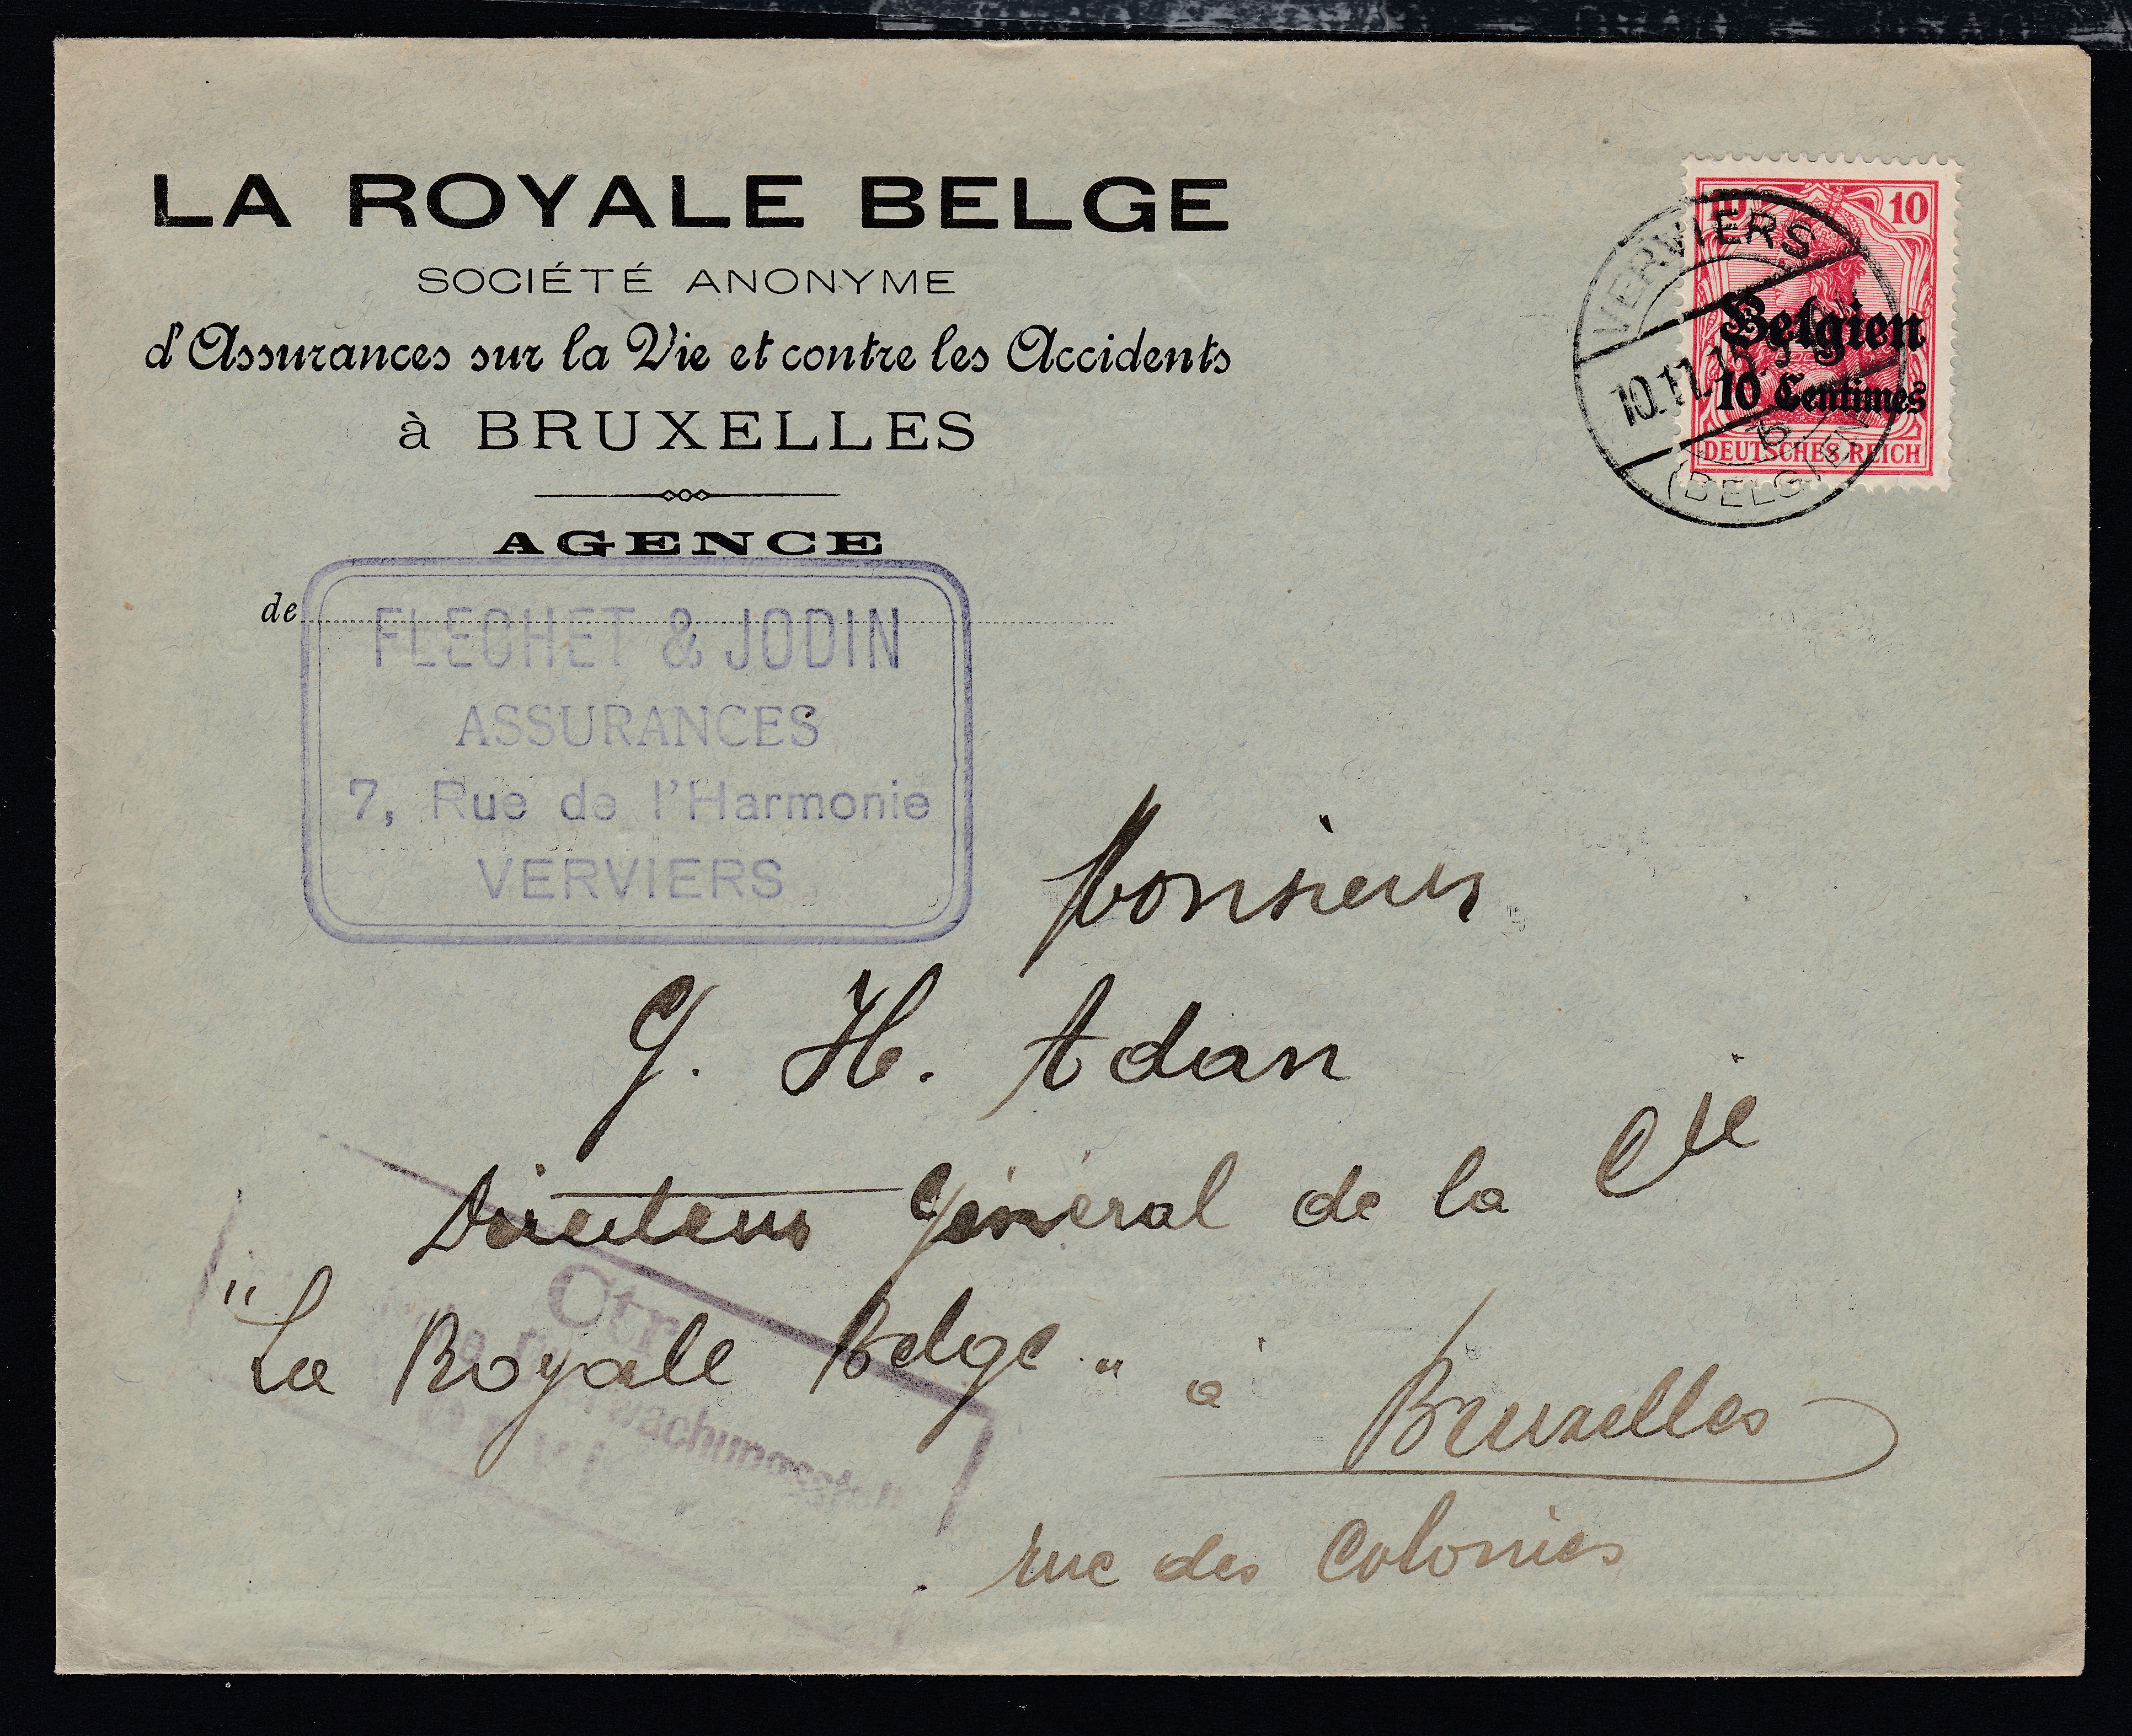 LA ROYALE BELGE
SOCIÉTÉ ANONYME
d'Assurances sur la Vie et contre les Accidents
à BRUXELLES
AGENCE
de
FLECHET & JODIN
ASSURANCES
7, Rue de l'Harmonie
VERVIERS
10 10
Belgien
10 Centimes
DEUTSCHES REICH
VERVIERS
10.11.15.
b
(BELGIEN)
Monsieur
G. H. Adan
Directeur Général de la Cie
"La Royale Belge" à Bruxelles
rue des Colonies